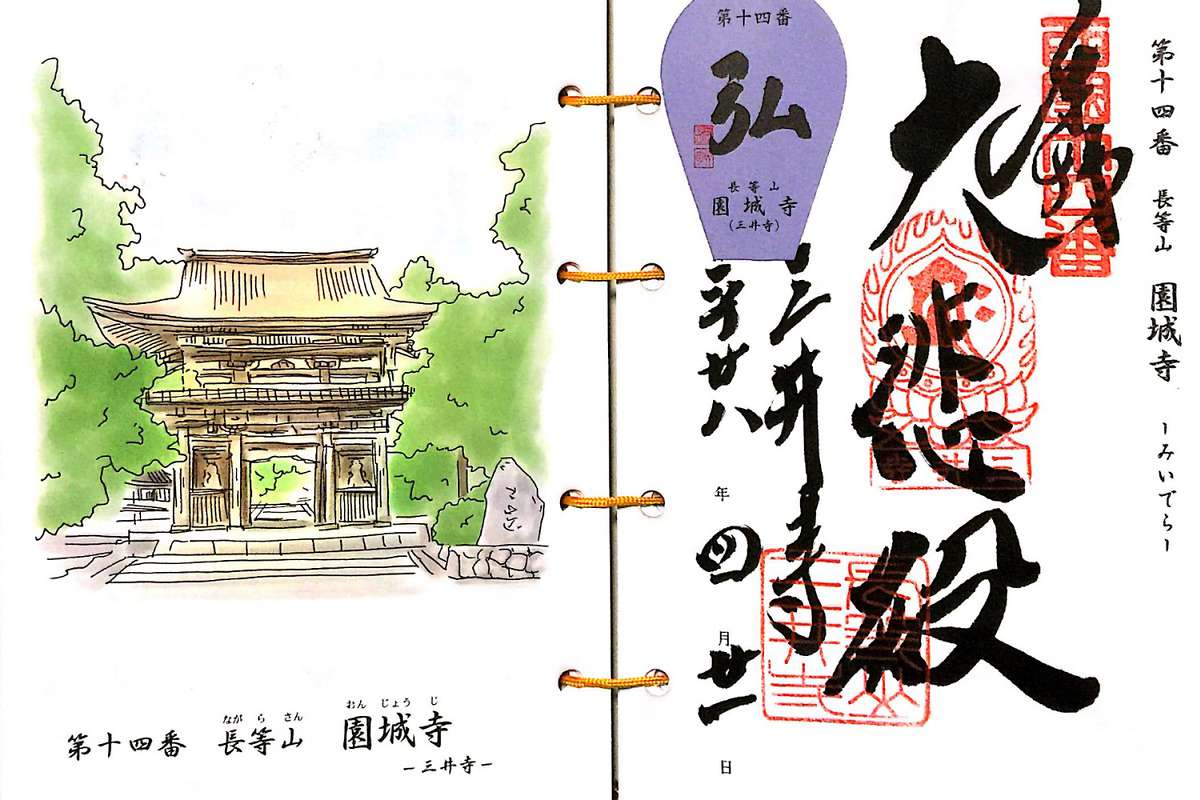 第十四番 長等山 園城寺 ーみいでらー
奉拝
西国十四番
大悲殿
三井寺
平廿八年四月廿一日
第十四番
弘
長等山
園城寺
(三井寺)
ながらさん おんじょうじ
第十四番 長等山 園城寺
ー三井寺ー